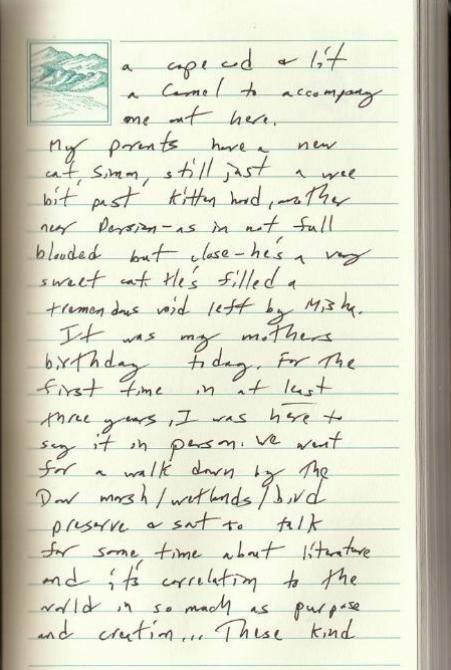 a cape cod & lit
a Camel to accompany
me out here.
My parents have a new
cat, Simon, still just a wee
bit past Kitten hood, another
near Persian - as in not full
blooded but close - he's a very
sweet cat. He's filled a
tremendous void left by Misha.
It was my mothers
birthday today. For the
first time in at least
three years, I was here to
say it in person. We went
for a walk down by the
Dow marsh/wetlands/bird
preserve & sat to talk
for some time about literature
and it's correlation to the
world in so much as purpose
and creation... These kind